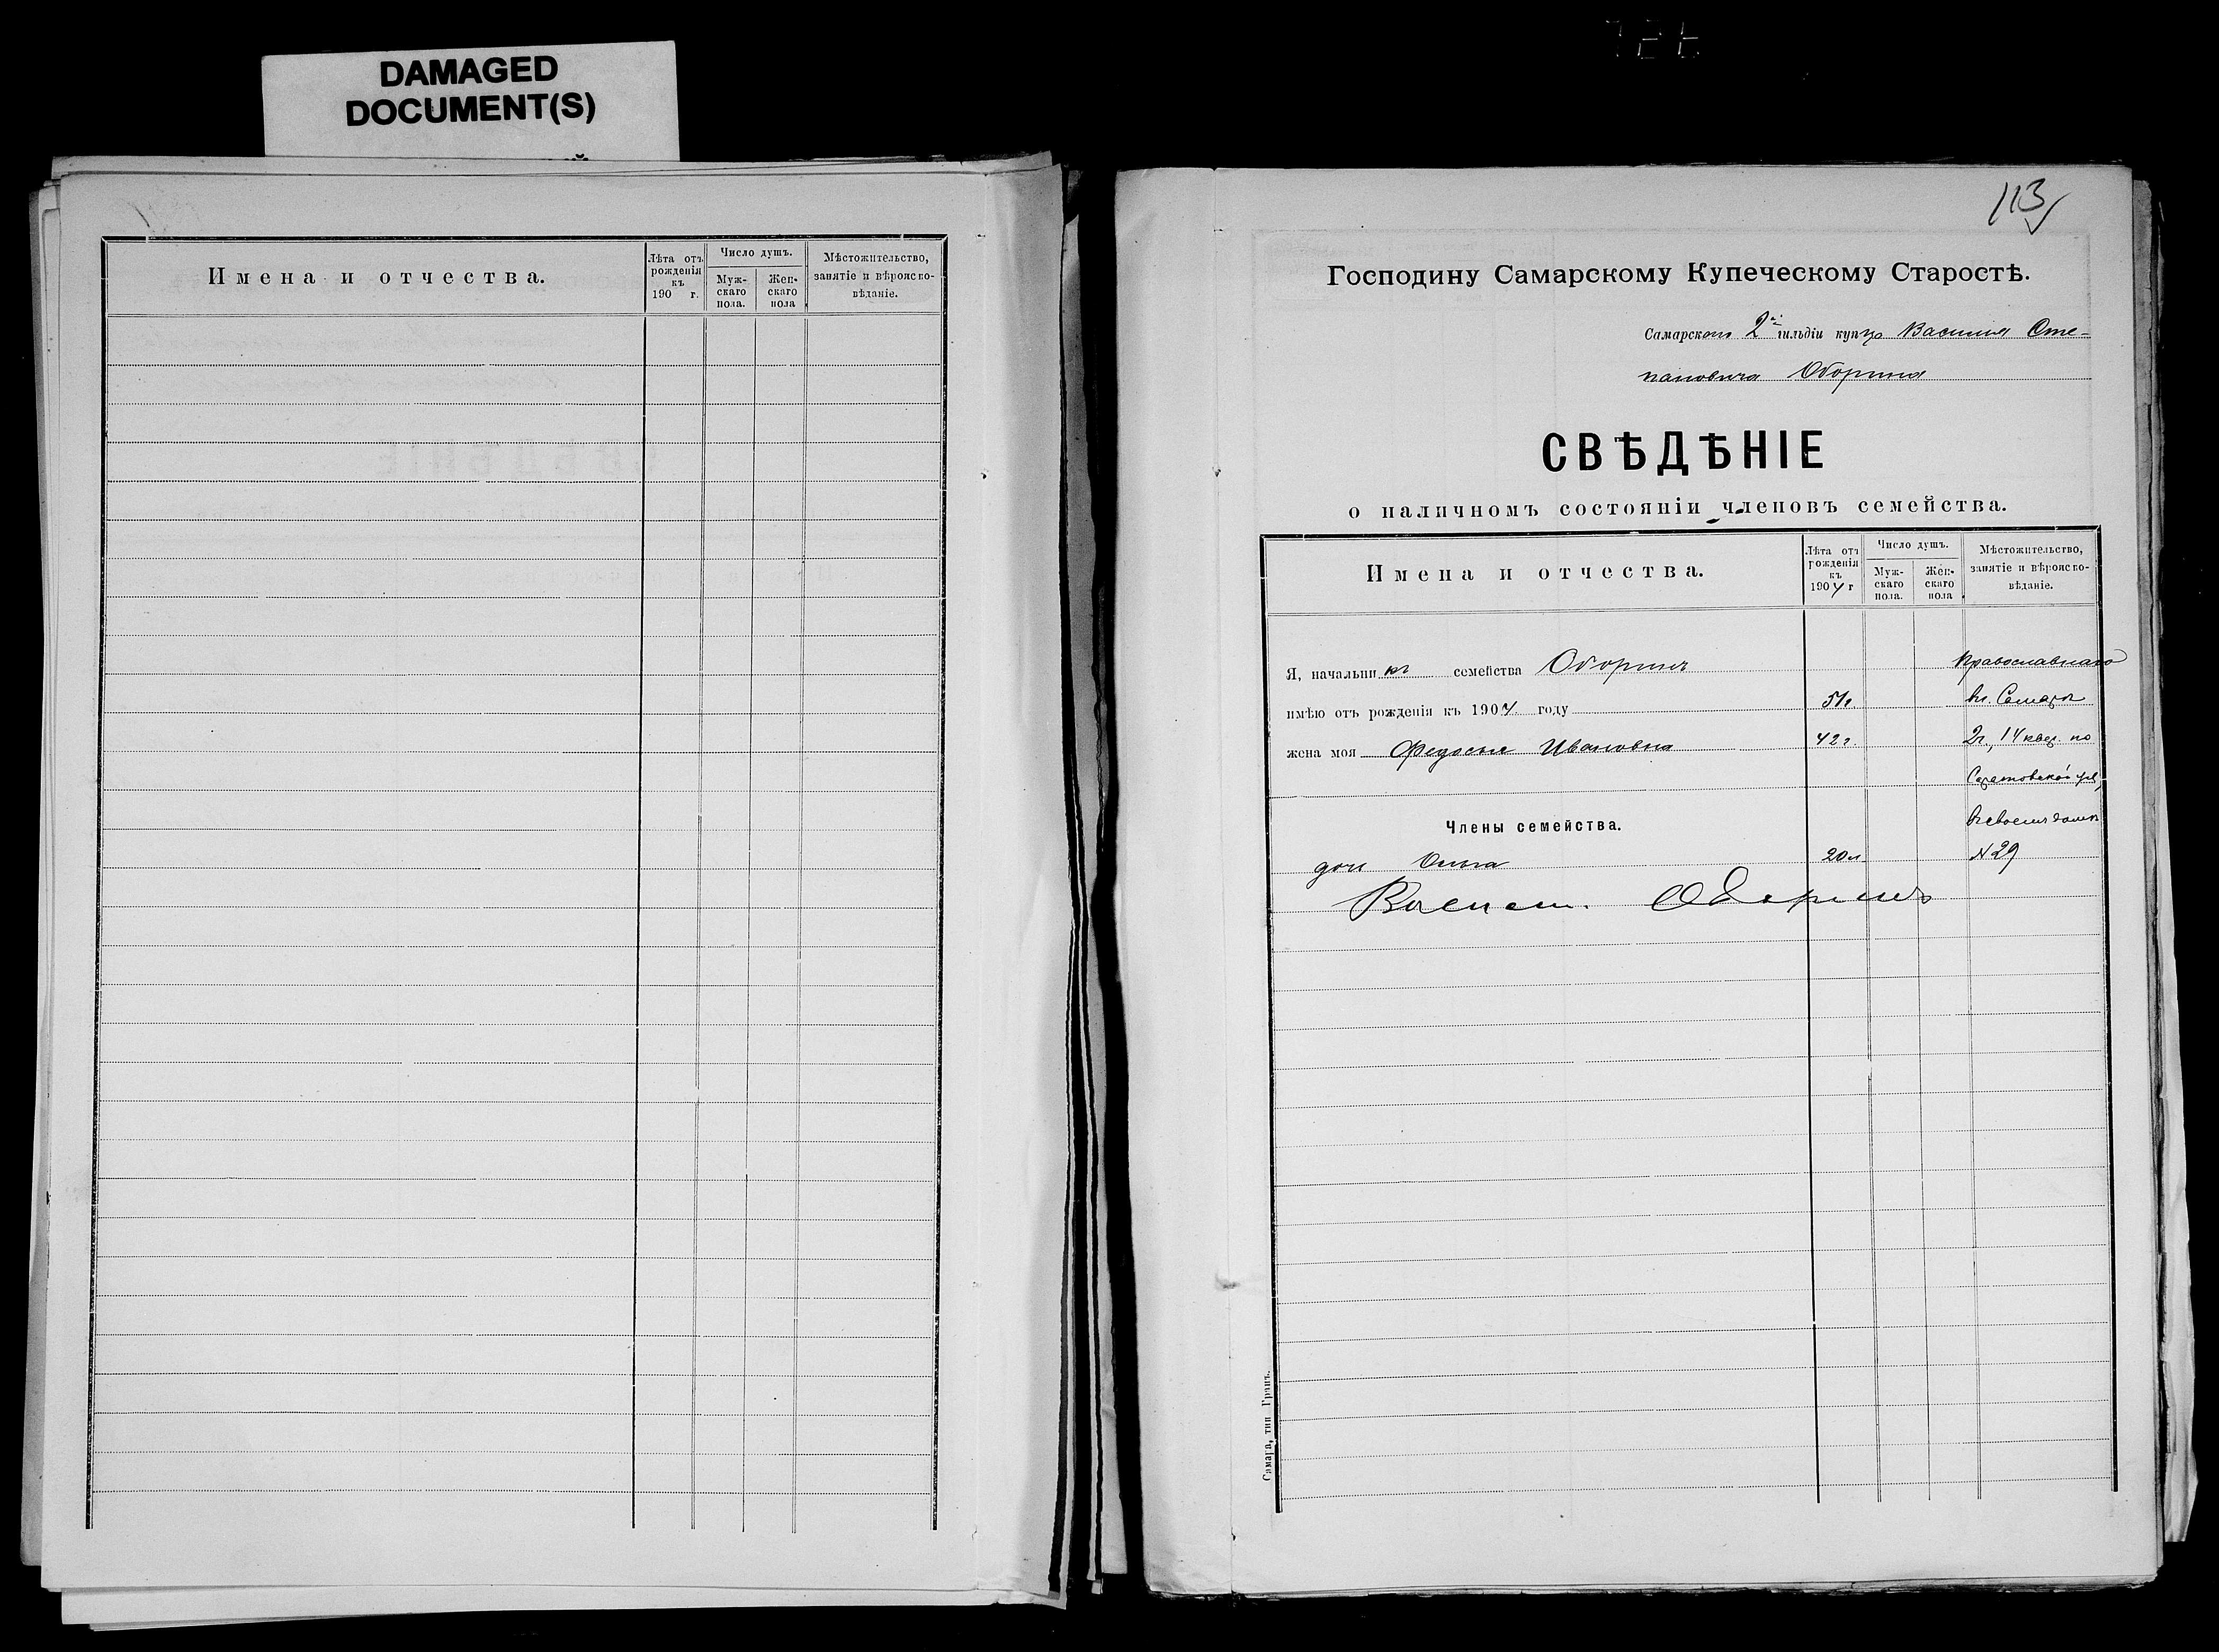 DAMAGED
DOCUMENT(S)
Имена и отчества.
Лѣта отъ рожденія къ 190 г.
Число душъ.
Мужскаго пола.
Женскаго пола
Мѣстожительство, занятіе и вѣроисповѣданіе.
113
Господину Самарскому Купеческому Старостѣ.
Самарскаго 2й гильдіи купца Василія Сте-
пановича Оборина
СВѢДѢНІЕ
о наличномъ состояніи членовъ семейства.
Имена и отчества.
Лѣта отъ рожденія къ 1904 г
Число душъ.
Мужскаго пола.
Женскаго пола
Мѣстожительство, занятіе и вѣроисповѣданіе.
Я, начальникъ семейства Оборинъ Православнаго
имѣю отъ рожденія къ 1904 году 51г. въ г. Самарѣ
жена моя Федосья Ивановна 42 г. 2ч., 14 квар. по
Саратовской ул.,
Члены семейства. въ своемъ домѣ
дочь Ольга 20 л. №29
Василій Оборинъ
Самара, тип Гранъ.